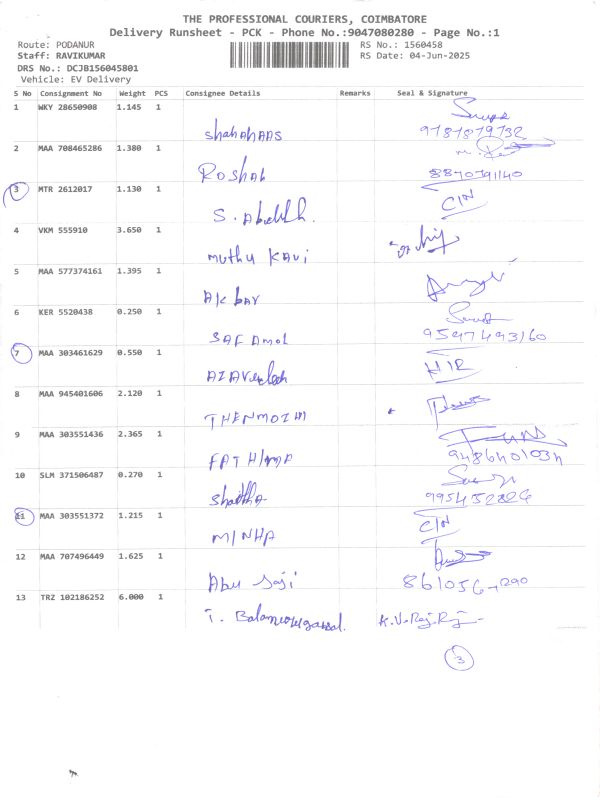 THE PROFESSIONAL COURIERS, COIMBATORE
Delivery Runsheet - PCK - Phone No.:9047080280 - Page No.:1
Route: PODANUR RS No.: 1560458
Staff: RAVIKUMAR RS Date: 04-Jun-2025
DRS No.: DCJB156045801
Vehicle: EV Delivery
S No Consignment No Weight PCS Consignee Details Remarks Seal & Signature
1 WKY 28650908 1.145 1
2 MAA 708465286 1.380 1
Roshal 8870791140
3 MTR 2612017 1.130 1 C/N
4 VKM 555910 3.650 1
muthu kavi
5 MAA 577374161 1.395 1
Akbar
6 KER 5520438 0.250 1
7 MAA 303461629 0.550 1
8 MAA 945401606 2.120 1
THENMOZHI
9 MAA 303551436 2.365 1
FATHIMA
10 SLM 371506487 0.270 1
11 MAA 303551372 1.215 1 C/N
MINHA
12 MAA 707496449 1.625 1
Abu
13 TRZ 102186252 6.000 1
3